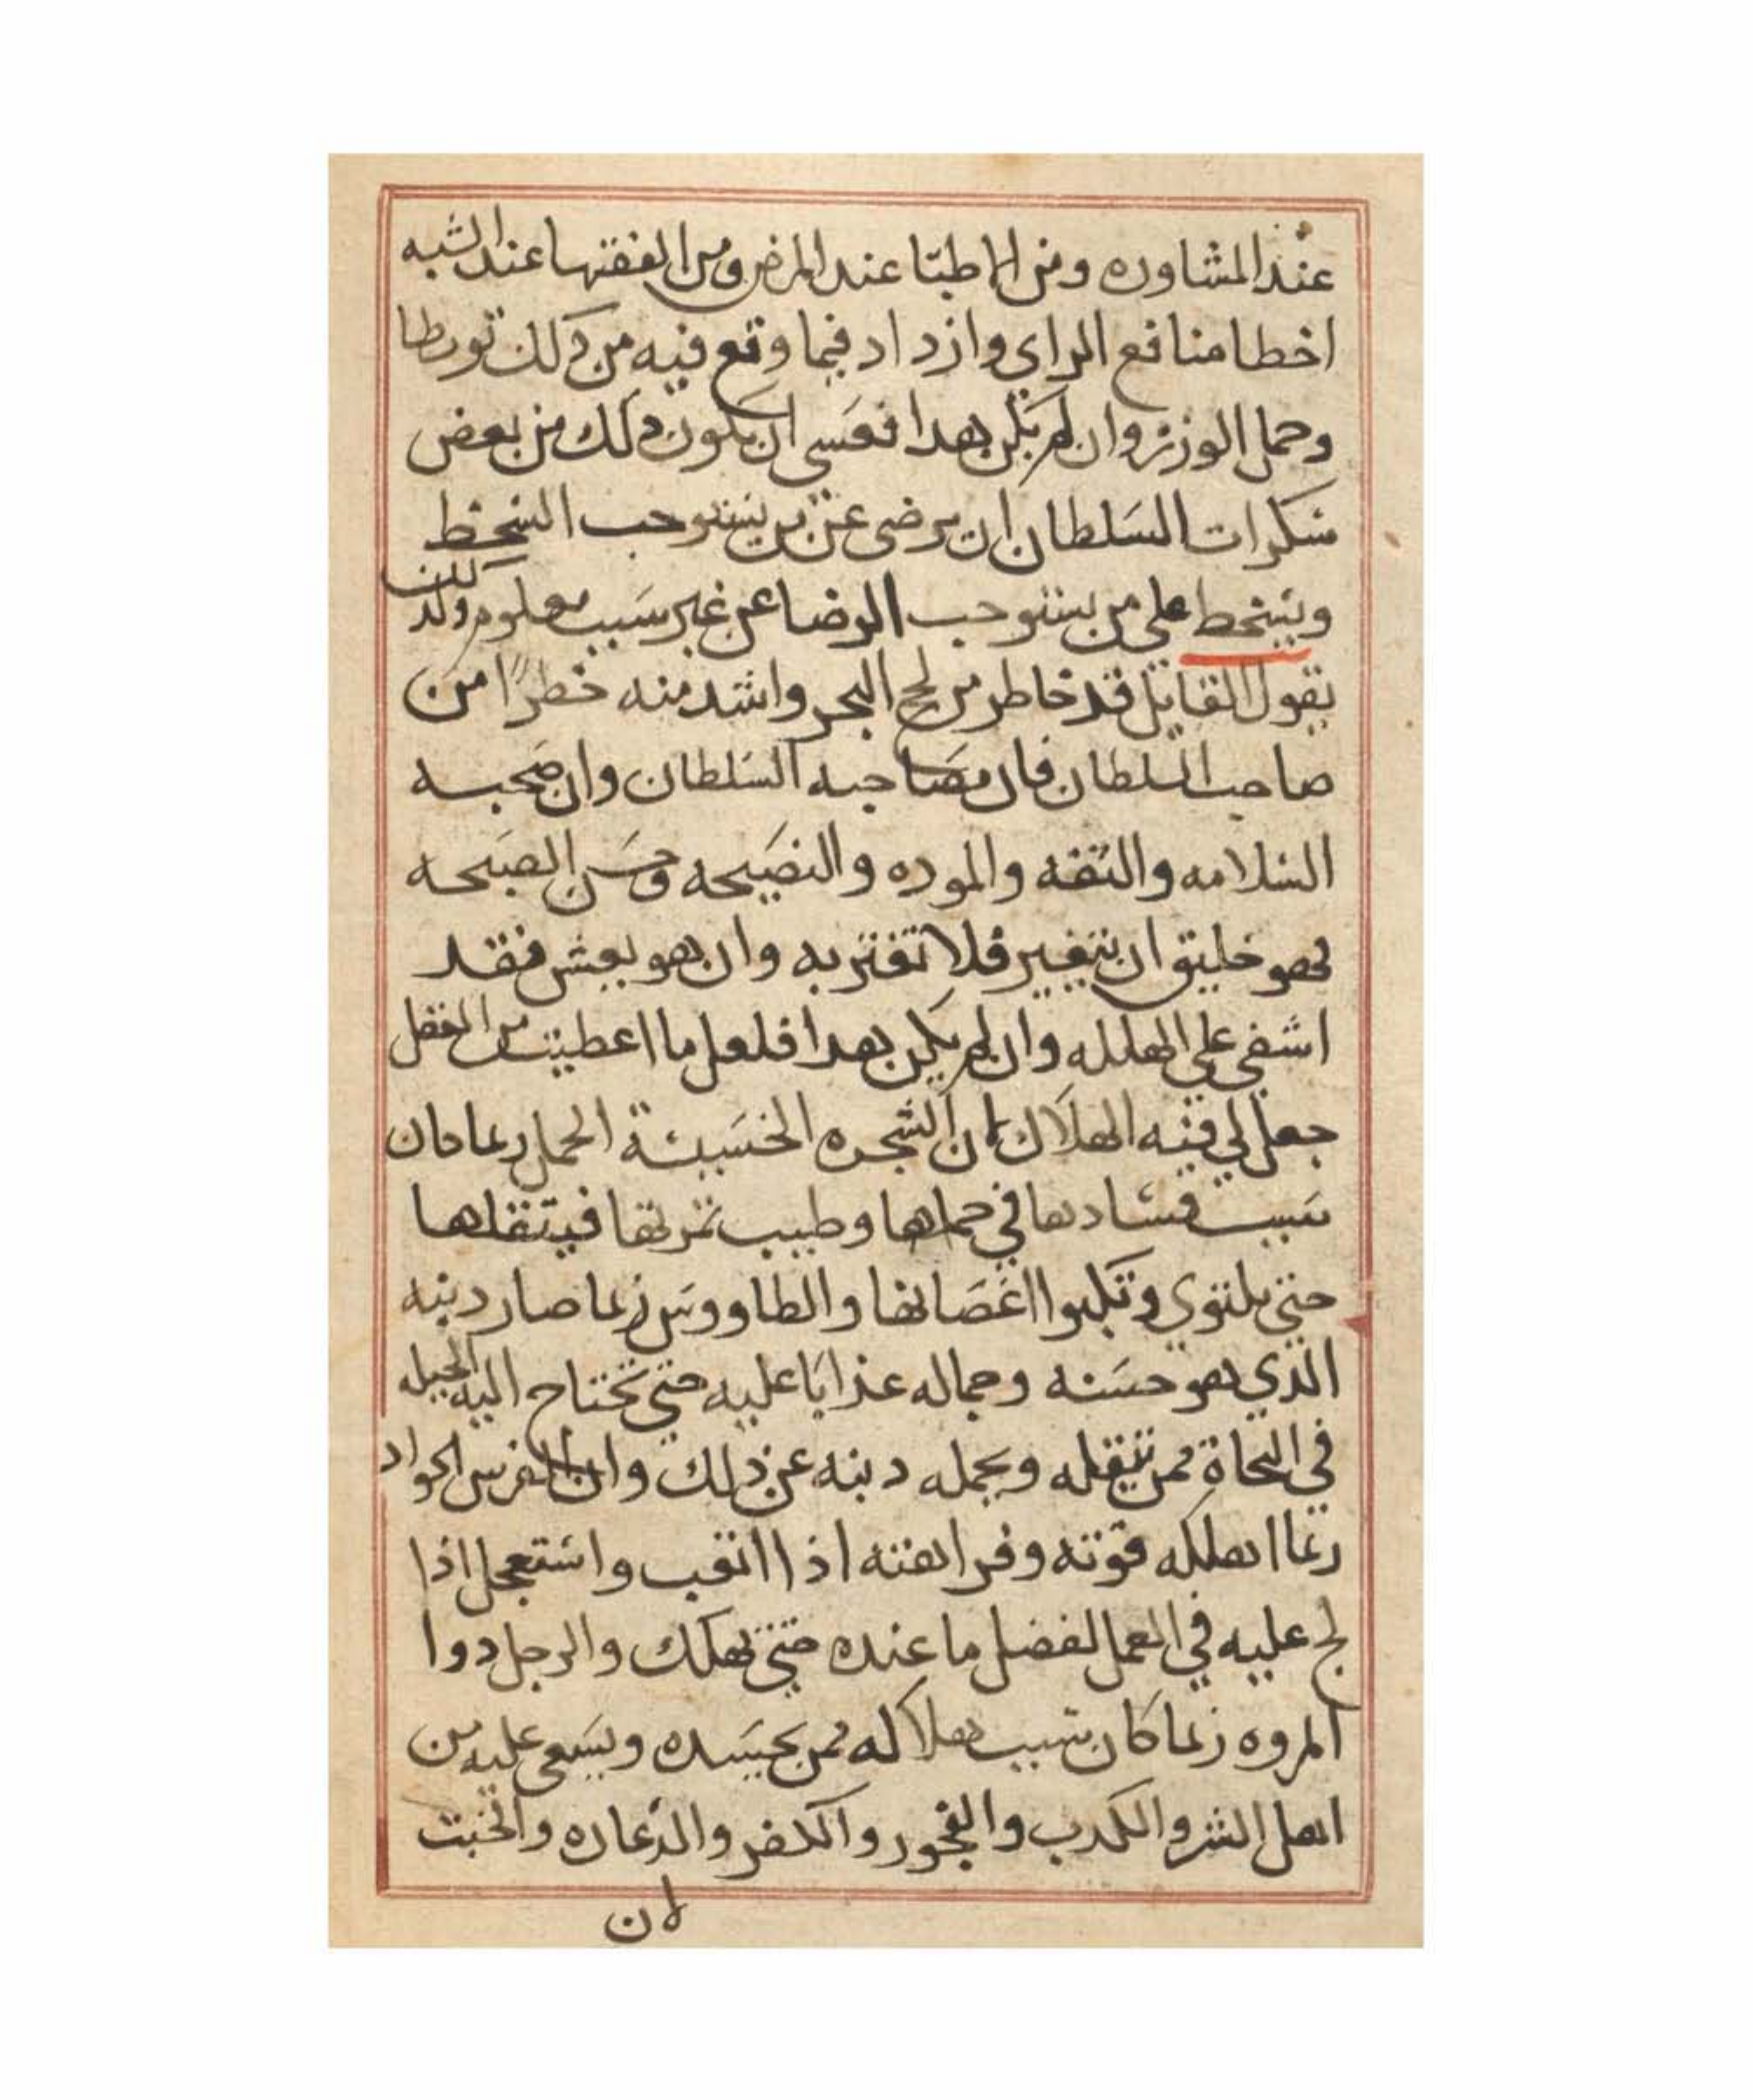 عند المشاوره ومن الاطبّا عند المرض ومن الفقها عند الشبه
اخطا منافع الراي وازداد فيما وقع فيه من ذلك تورطا
وحمل الوزر وان لم يكن هدا فعسى ان يكون دلك من بعض
سكرات السلطان ان يرضى عن من يستوجب السخط
ويسخط على من يستوجب الرضا عن غير سبب معلوم ولذلك
يقول القايل قد خاطر من لجج البحر واشد منه خطرًا من
صاحب السلطان فان مصاحبه السلطان وان صحبه
السلامه والثقه والموده والنصيحه وحسن الصبحه
لهو خليق ان يتغير فلا تغتر به وان هو يعش فقد
اشفى على الهلله وان لم يكن هدا فلعل ما اعطيت من الفضل
جعل لي فيه الهلاك لان الشجره الخسيئة الحمل ربما كان
سبب فسادها في حملها وطيب ثمرتها فيتقلها
حتى يلتوي وتكبوا اغصانها والطاووس ربما صار دنبه
الذي هو حسنه وجماله عذابًا عليه حتى تحتاج اليه الحيله
في النجاة ممن يتقله ويحمله دنبه عن ذلك وان الفرس الجواد
ربما اهلكه قوته وفراهته اذا اتعب واستعجل اذا
لج عليه في العمل لفضل ما عنده حتى تهلك والرجل دوا
المروه ربما كان سبب هلاكه ممن يحسده ويسعى عليه من
اهل الشر والكدب والفجور والكفر والدعاره والخبت
لان